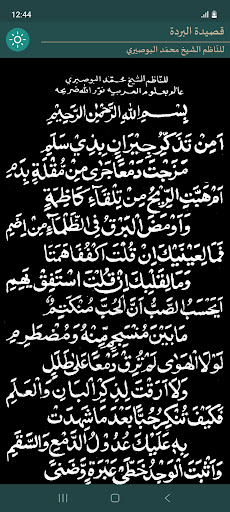 12:44
100%
قصيدة البردة
للنّاظم الشيخ محمّد البوصيري
للنّاظم الشيخ محمّد البوصيري
عالم بعلوم العربيه نوّر الله ضريحه
بِسْمِ اللهِ الرَّحْمٰنِ الرَّحِيْمِ
اَمِنْ تَذَكُّرِ جِيْرَانٍ بِذِيْ سَلَمٍ
مَزَجْتَ دَمْعًا جَرٰى مِنْ مُقْلَةٍ بِدَمِ
اَمْ هَبَّتِ الرِّيْحُ مِنْ تِلْقَاءِ كَاظِمَةٍ
وَاَوْمَضَ الْبَرْقُ فِي الظَّلْمَاءِ مِنْ اِضَمِ
فَمَا لِعَيْنَيْكَ اِنْ قُلْتَ اكْفُفَا هَمَتَا
وَمَا لِقَلْبِكَ اِنْ قُلْتَ اسْتَفِقْ يَهِمِ
اَيَحْسَبُ الصَّبُّ اَنَّ الْحُبَّ مُنْكَتِمٌ
مَا بَيْنَ مُنْسَجِمٍ مِنْهُ وَمُضْطَرِمِ
لَوْلَا الْهَوٰى لَمْ تُرِقْ دَمْعًا عَلٰى طَلَلٍ
وَلَا اَرِقْتَ لِذِكْرِ الْبَانِ وَالْعَلَمِ
فَكَيْفَ تُنْكِرُ حُبًّا بَعْدَ مَا شَهِدَتْ
بِهِ عَلَيْكَ عُدُوْلُ الدَّمْعِ وَالسَّقَمِ
وَاَثْبَتَ الْوَجْدُ خَطَّيْ عَبْرَةٍ وَضَنًى